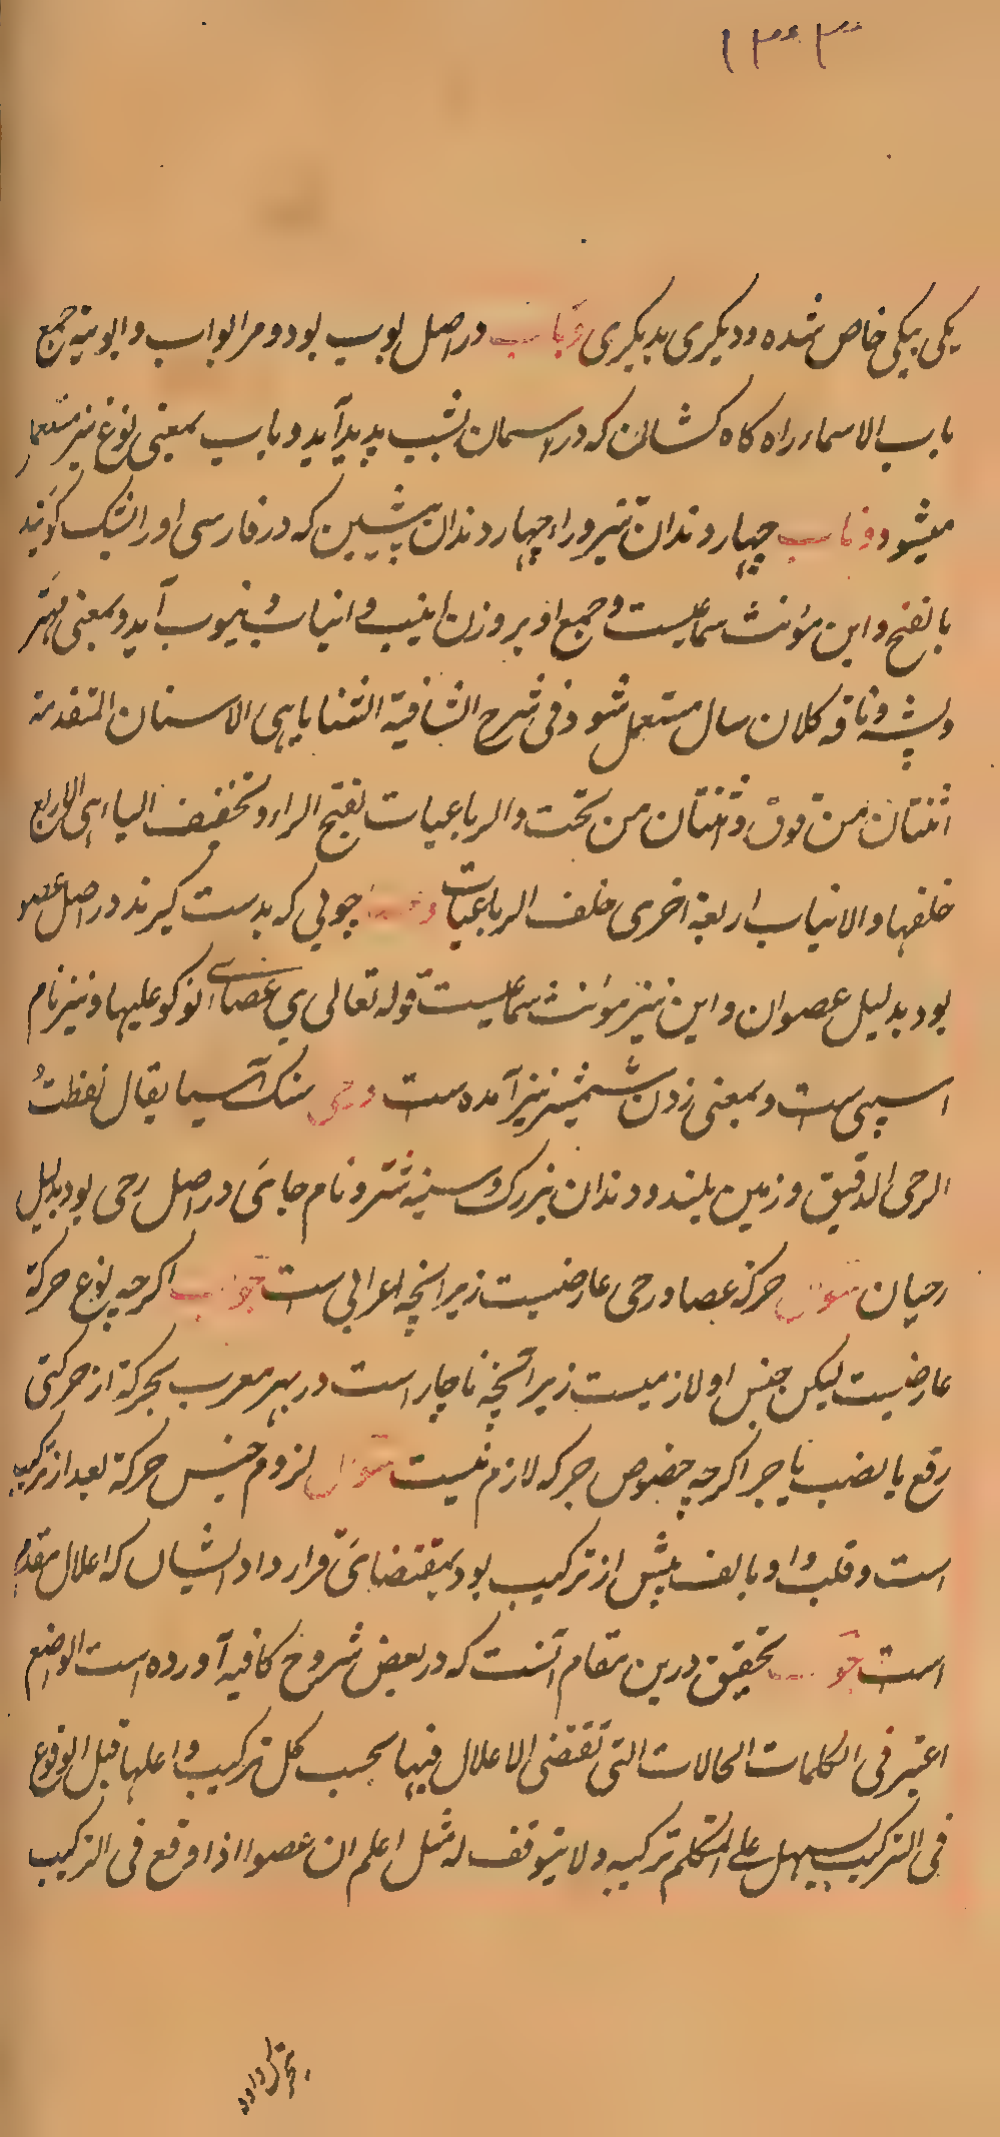 ۱۳۳
یکی بیکی خاص شده و دیکری بدیکری و باب در اصل بوب بود و مر ابواب و ابوبة جمع
باب الاسماء راه کاه کشان که در اسمان بشب پدید آید و باب بمعنی نوع نیز مستعمل
میشود و ناب چهار دندان نیز وراء چهار دندان پیشین که در فارسی او را نشک کویند
بالفتح و این مؤنث سماعیست و جمع او بر وزن انیب و انیاب و نیوب آید و بمعنی مهتر
و پشه و ناقه کلان سال مستعمل شود فی شرح الشافیة الثنایا هی الاسنان المتقدمة
اثنتان من فوق و ثنتان من تحت و الرباعیات بفتح الراء و تخفیف الیاء هی الاربع
خلفها و الانیاب اربعة اخری خلف الرباعیات و عصا چوبی که بدست کیرند در اصل عصو
بود بدلیل عصوان و این نیز مؤنث سماعیست قوله تعالی هی عصای اتوکو علیها و نیز نام
اسپی ست و بمعنی زدن شمشیر نیز آمده ست و رحی سنک آسیا یقال نفظتُ
الرحی الدقیق و زمین بلند و دندان بزرک و سینه شتر و نام جائی در اصل رحی بود بدلیل
رحیان سوال حرکة عصا و رحی عارضیست زیرانچه اعرابی ست جواب اکرچه نوع حرکة
عارضیست لیکن جنس او لازمیست زیرانچه ناچار است در بهر معرب بحرکة از حرکتی
رفع یا نصب یا جر اکرچه خصوص حرکه لازم نیست سوال لزوم جنس حرکة بعد از ترکیب
است و قلب واو بالف پیش از ترکیب بود بمقتضائی قرارداد ایشان که اعلال مقدم
است جواب تحقیق درین مقام آنست که در بعض شروح کافیه آورده است الواضع
اعتبر فی الکلمات الحالات التی تقتضی الاعلال فیها بحسب کل ترکیب و اعلها قبل الوقوع
فی الترکیب لیسهل علی المتکلم ترکیبه و لا یتوقف له مثل اعلم ان عصوا اذا وقع فی الترکیب